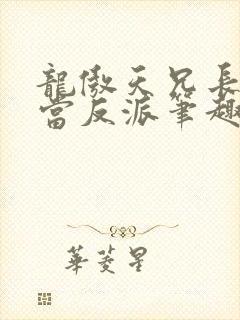 龍傲天兄長
當反派筆趣
華菱星